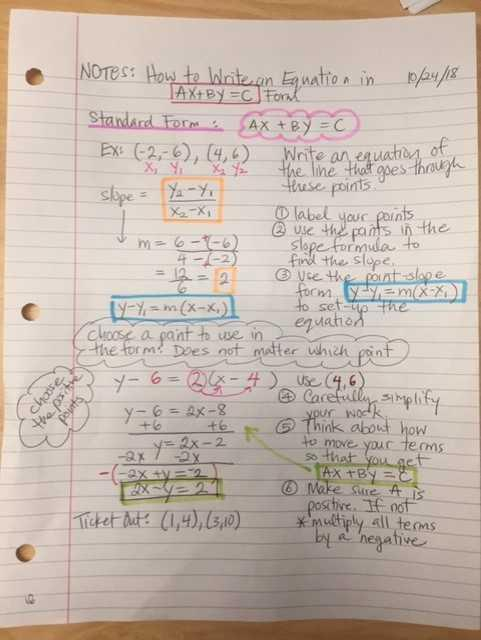 NOTES: How to Write an Equation in 10/24/18
AX+BY=C Form
Standard Form: AX + BY = C
Ex: (-2,-6), (4,6)
X₁ Y₁ X₂ Y₂
slope = Y₂-Y₁
X₂-X₁
m = 6-(-6)
4-(-2)
= 12 = 2
6
y-y₁ = m(x-x₁)
Write an equation of
the line that goes through
these points.
① label your points
② use the points in the
slope formula to
find the slope.
③ Use the point-slope
form y-y₁=m(x-x₁)
to set-up the
equation
choose a point to use in
the form. Does not matter which point
choose
the positive
points
y - 6 = 2(x - 4) use (4,6)
y - 6 = 2x - 8
+6 +6
y = 2x - 2
-2x -2x
-(-2x + y = -2)
2x - y = 2
④ Carefully simplify
your work.
⑤ Think about how
to move your terms
so that you get
AX + BY = C
⑥ Make sure A is
positive. If not
* multiply all terms
by a negative
Ticket Out: (1,4), (3,10)